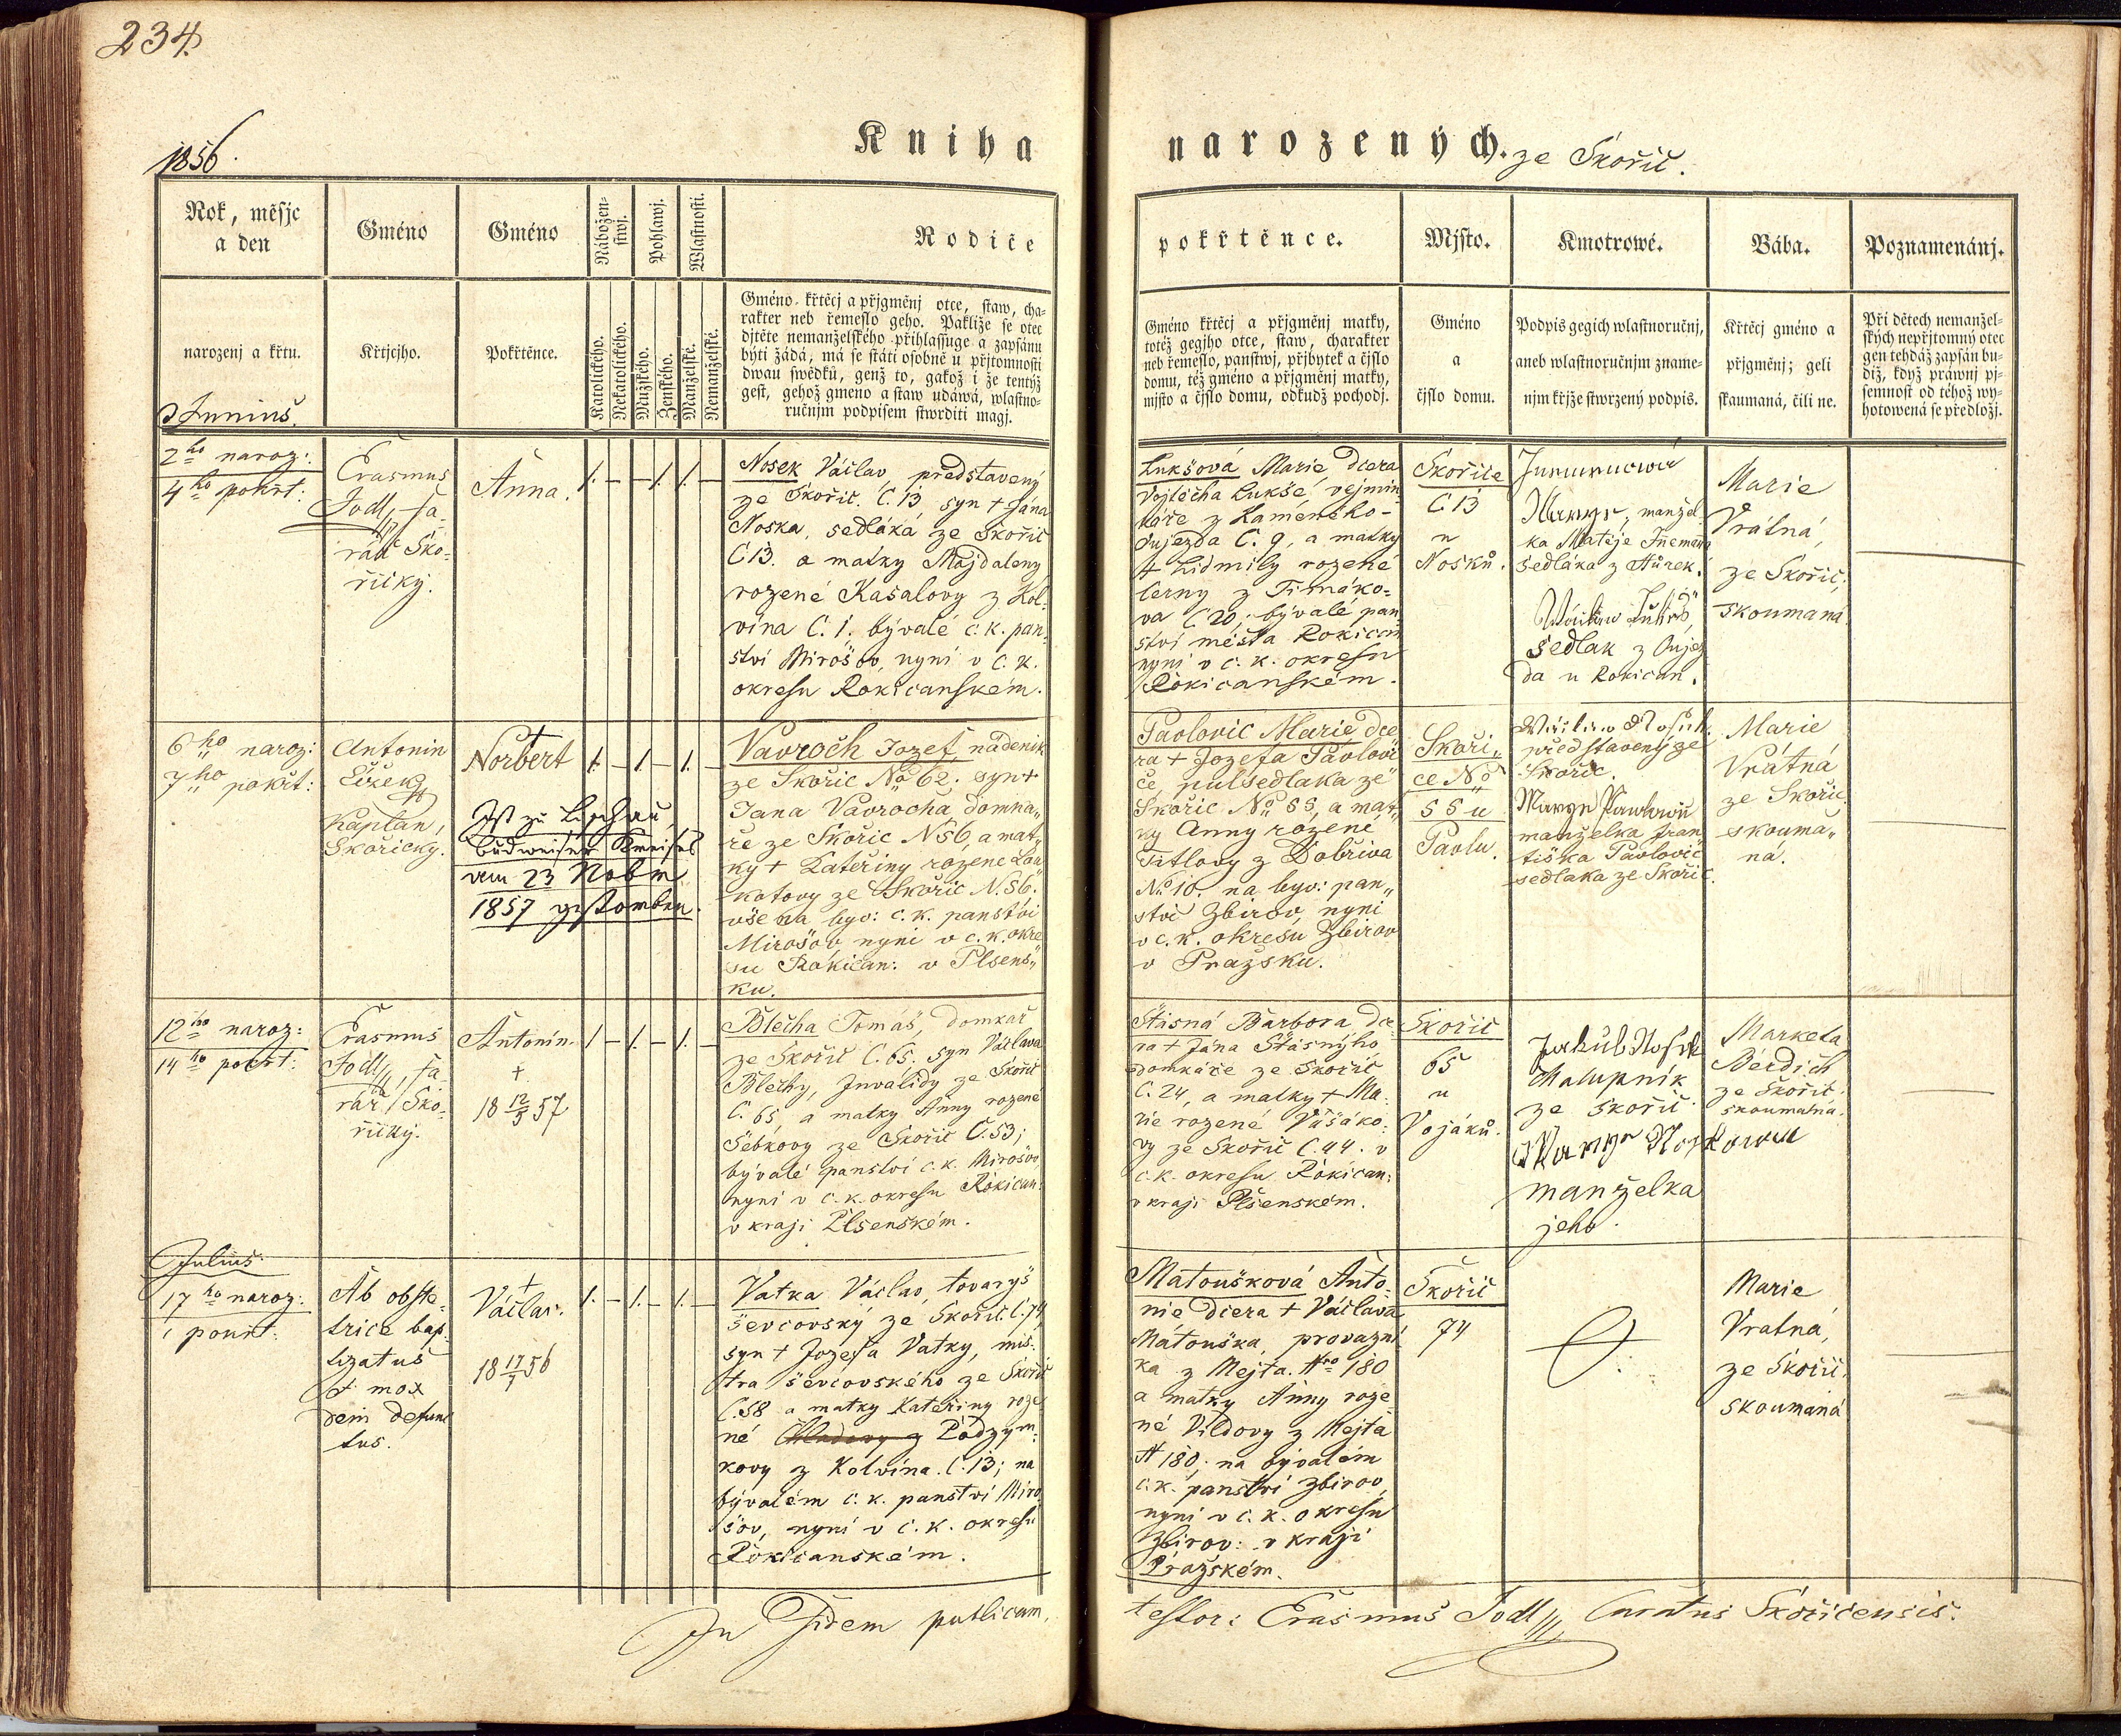 234.
1856.
Kniha
narozených. ze Skořič.
Rok, měsjc
a den
narozenj a křtu.
Gméno
Křtjcjho.
Gméno
Pokřtěnce.
Nábožen-
stwj.
Pohlawj.
Wlastnosti.
Katolického.
Nekatolického.
Mužského.
Ženského.
Manželské.
Nemanželské.
Rodiče
Gméno křticj a přjgměnj otce, staw, cha-
rakter neb řemeslo geho. Pakliže se otec
djtěte nemanželského přihlassuge a zapsánu
býti žádá, má se státi osobně u přjtomnosti
dwau swědků, genž to, gakož i že tentýž
gest, gehož gmeno a staw udáwá, wlastno-
ručnjm podpisem stwrditi magj.
pokřtěnce.
Gméno křticj a přjgměnj matky,
totéž gegjho otce, staw, charakter
neb řemeslo, panstwj, přjbytek a čjslo
domu, též gméno a přjgměnj matky,
mjsto a čjslo domu, odkudž pochodj.
Mjsto.
Gméno
a
čjslo domu.
Kmotrowé.
Podpis gegich wlastnoručnj,
aneb wlastnoručnjm zname-
njm křjže stwrzený podpis.
Bába.
Křticj gméno a
přjgměnj; geli
skaumaná, čili ne.
Poznamenánj.
Při dětech nemanžel-
ských nepřjtomný otec
gen tehdáž zapsán bu-
diž, když práwnj pj-
semnost od téhož wy-
hotowená se předložj.
Junius.
2ho naroz:
4ho pokřt:
Erasmus
Jodl, fa-
rář Sko-
řický.
Anna.
1. – – 1. 1. –
Nosek Václav, představený
ze Skořic. Č. 13, syn + Jána
Noska, sedláka ze Skořic
Č 13. a matky Majdaleny
rozené Kasalovy z Kol-
vína Č. 1. bývalé c. k. pan-
ství Mirošov, nyní v c. k.
okresu Rokicanském.
Lukšová Marie dcera
Vojtěcha Lukše, vejmin-
káře z Kameného-
Oujezda Č. 9, a matky
+ Lidmily rozené
Černy z Timáko-
va Č 20, bývalé pan
ství města Rokican
nyní v c. k. okresu
Rokicanském.
Skořice
Č. 13
u
Nosků.
manžel-
ka Matěje
sedláka z Hůrek.
sedlak z Oujez
da u Rokican.
Marie
Vrátná,
ze Skořic,
skoumaná
6ho naroz:
7ho pokřt:
Antonín
Čížek
Kaplan,
Skořický.
Norbert
Ist zu Lischau
Budweiser Kreises
am 23 Nobm
1857 gestorben.
1. – 1. – 1. –
Vavroch Jozef, nádeník
ze Skořic No 62. syn +
Jana Vavrocha, domká„
ře ze Skořic N 56, a mat„
ky + Kateřiny rozené Kou
kotovy ze Skořic N. 56.
vše na byv: c. k. panství
Mirošov, nyní v c. k. okre
su Rokican: v Plsens„
ku.
Pavlovic Marie dce
ra + Jozefa Pavlovi
če, pulsedlaka ze
Skořic No 55, a mat„
ky Anny rozené
Titlovy z Dobřiva
No 10. na byv: pan„
ství Zbirov, nyní
v c. k. okresu Zbirov
v Pražsku.
Skoři„
ce No
55 u
Pavlu.
Václav Nosek
představený ze
Skořic.
manželka Fran
tiška Pavlovic
sedlaka ze Skořic.
Marie
Vrátná
ze Skořic
skouma„
ná.
12ho naroz:
14ho pokřt:
Erasmus
Jodl, fa-
rář Sko-
řický.
Antonín.
+
18 12/5 57
1. – 1. – 1. –
Blecha Tomáš, domkář
ze Skořic Č. 65. syn Václava
Blechy, Invalidy ze Skořic
Č. 65, a matky Anny rozené
Šebkovy ze Skořic Č. 53;
bývalé panství c. k. Mirošov
nyní v c. k. okresu Rokican:
v kraji Plsenském.
Štásná Barbora, dce-
ra + Jána Štásnýho,
domkáře ze Skořic
Č. 24, a matky + Ma-
rie rozené Vašáko-
vy ze Skořic Č. 44. v
c. k. okresu Rokican:
v kraji Plsenském.
Skořic
65
u
Vojáků.
Jakub Nosek
Chalupník
ze skořic
Marye Noskowa
manželka
jeho.
Marketa
Berdich
ze Skořic
skoumaná.
Julius.
17ho naroz:
i pokřt:
Ab obste-
trice bap-
tizatus
et mox
dein defunc
tus.
+
Václav.
18 17/7 56
1. – 1. – 1. –
Vatka Václav, tovaryš
ševcovský ze Skořic Č. 74,
syn + Jozefa Vatky, mis-
tra ševcovského ze Skořic
Č. 58 a matky Kateřiny roze
né Podzym-
kovy z Kolvína. Č. 13; na
bývalém c. k. panství Miro
šov, nyní v c. k. okresu
Rokicanském.
Matoušková Anto-
nie dcera + Václava
Matouška, provazní
ka z Mejta. Nro 180
a matky Anny roze
né Vildovy z Mejta
N 180; na bývalém
c. k. panství Zbirov,
nyní v c. k. okresu
Zbirov: v kraji
Pražském.
Skořic
74
Marie
Vratná,
ze Skořic.
skoumaná
In Fidem publicam,
testor: Erasmus Jodl, Curatus Skořicensis.